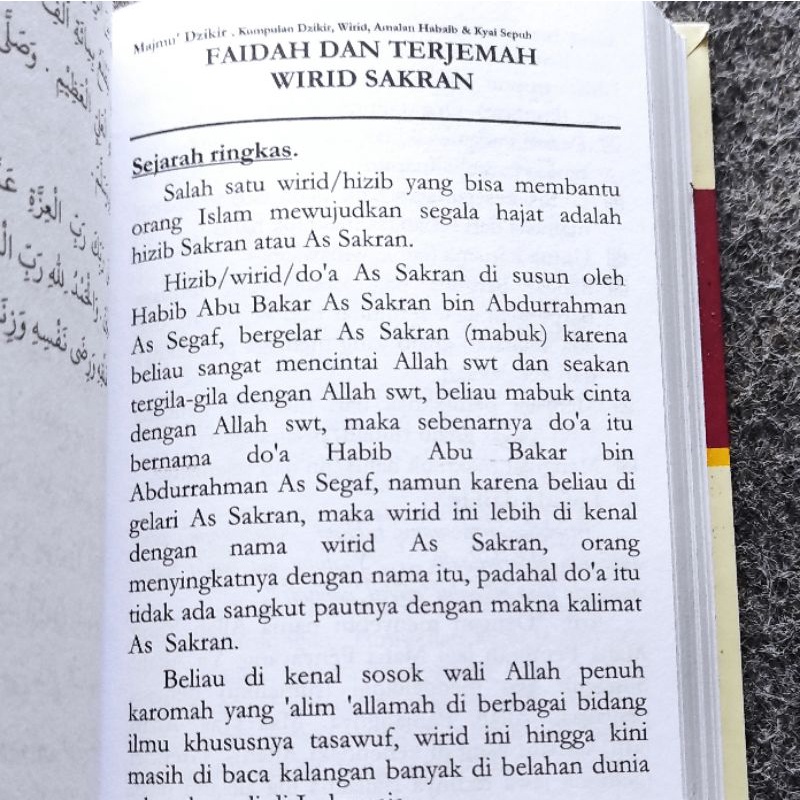 Majmu' Dzikir . Kumpulan Dzikir, Wirid, Amalan Habaib & Kyai Sepuh
FAIDAH DAN TERJEMAH
WIRID SAKRAN
Sejarah ringkas.
Salah satu wirid/hizib yang bisa membantu
orang Islam mewujudkan segala hajat adalah
hizib Sakran atau As Sakran.
Hizib/wirid/do'a As Sakran di susun oleh
Habib Abu Bakar As Sakran bin Abdurrahman
As Segaf, bergelar As Sakran (mabuk) karena
beliau sangat mencintai Allah swt dan seakan
tergila-gila dengan Allah swt, beliau mabuk cinta
dengan Allah swt, maka sebenarnya do'a itu
bernama do'a Habib Abu Bakar bin
Abdurrahman As Segaf, namun karena beliau di
gelari As Sakran, maka wirid ini lebih di kenal
dengan nama wirid As Sakran, orang
menyingkatnya dengan nama itu, padahal do'a itu
tidak ada sangkut pautnya dengan makna kalimat
As Sakran.
Beliau di kenal sosok wali Allah penuh
karomah yang 'alim 'allamah di berbagai bidang
ilmu khususnya tasawuf, wirid ini hingga kini
masih di baca kalangan banyak di belahan dunia
الْعَظِيْمِ . وَصَلَّى
رَبِّ الْعِزَّةِ
وَالْحَمْدُ لِلّٰهِ رَبِّ